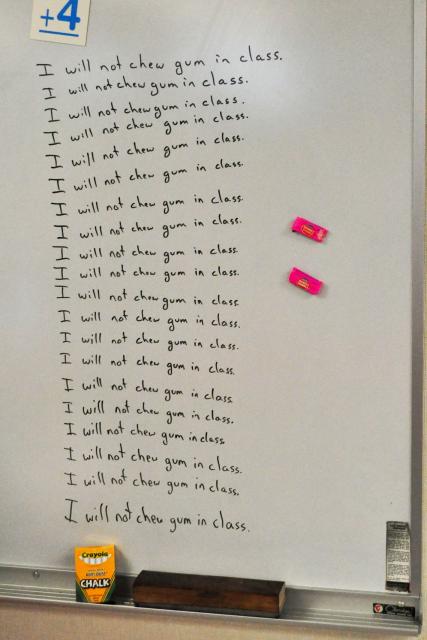 +4
I will not chew gum in class.
I will not chew gum in class.
I will not chew gum in class.
I will not chew gum in class.
I will not chew gum in class.
I will not chew gum in class.
I will not chew gum in class.
I will not chew gum in class.
I will not chew gum in class.
I will not chew gum in class.
I will not chew gum in class.
I will not chew gum in class.
I will not chew gum in class.
I will not chew gum in class.
I will not chew gum in class.
I will not chew gum in class.
I will not chew gum in class.
I will not chew gum in class.
I will not chew gum in class.
I will not chew gum in class.
Crayola
CHALK